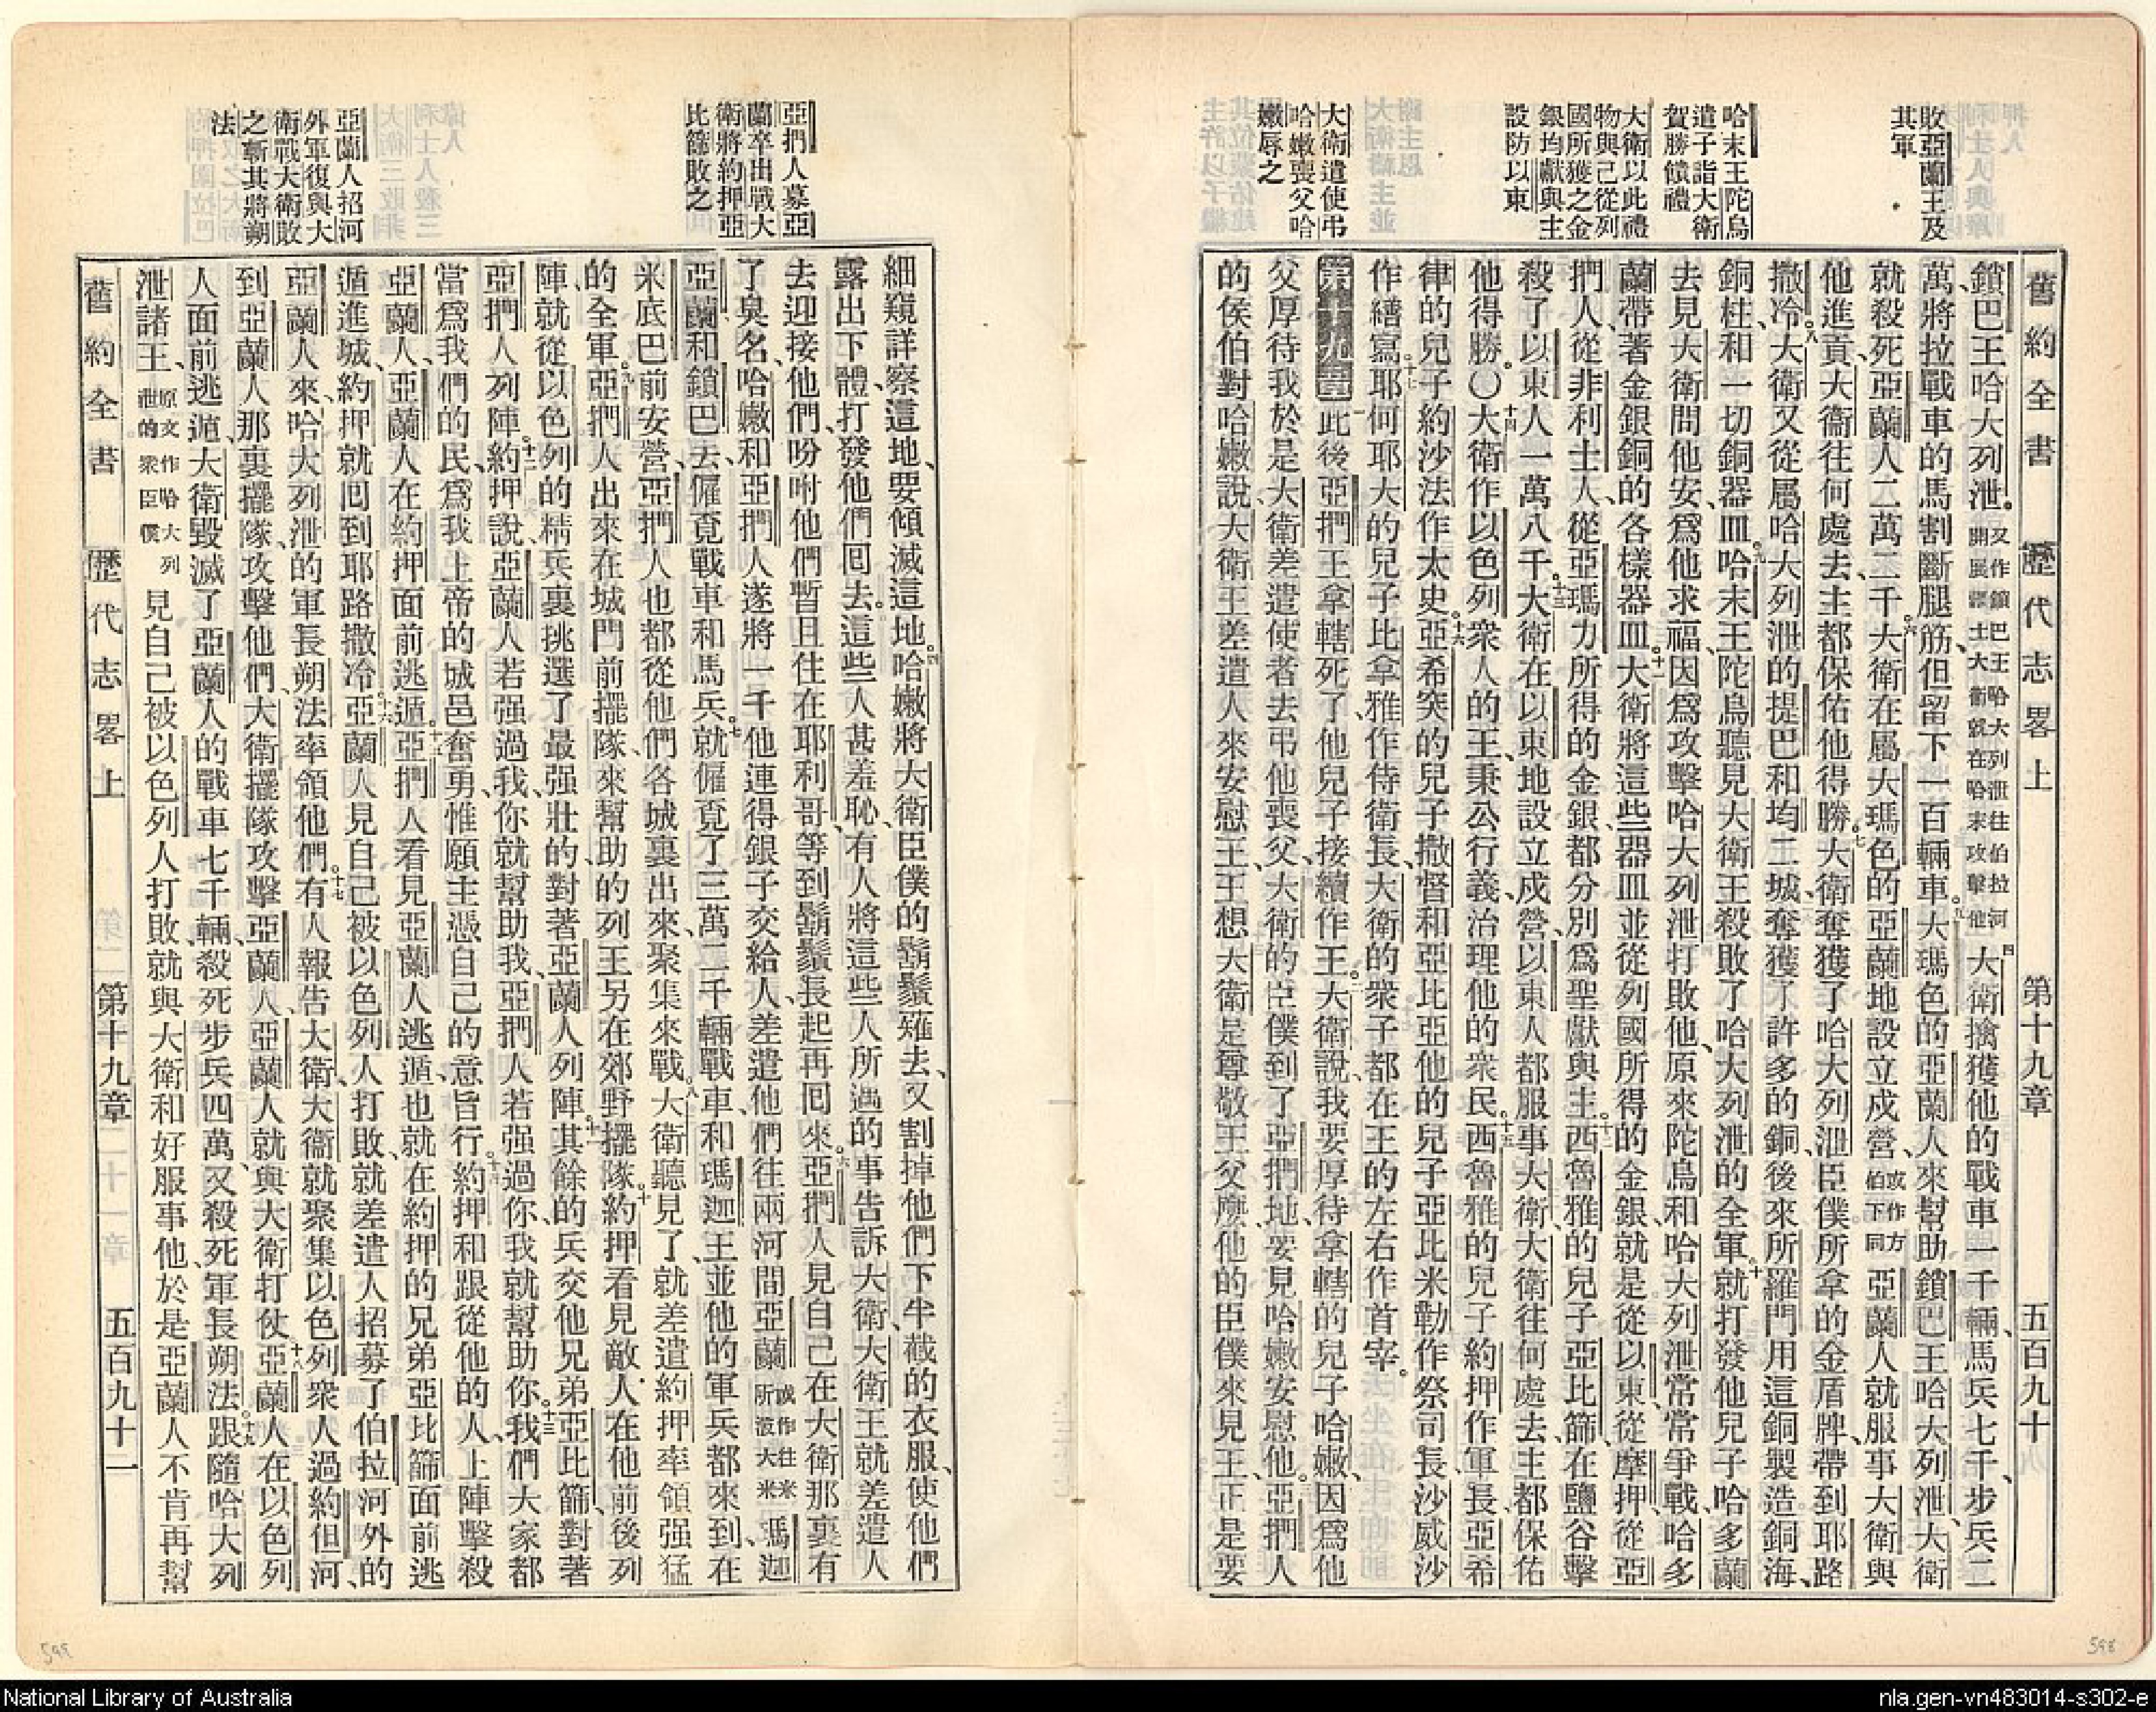 敗亞蘭王及
其軍
哈末王陀烏
遣子詣大衛
賀勝饋禮
大衛以此禮
物與己從列
國所獲之金
銀均獻與主
設防以東
大衛遣使弔
哈嫩喪父哈
嫩辱之
舊約全書 歷代志畧上 第十九章 五百九十
鎖巴王哈大列泄。又作鎖巴王哈大列泄往伯拉河開展疆土大衛就在哈末攻擊他四大衛擒獲他的戰車一千輛、馬兵七千、步兵二
萬、將拉戰車的馬割斷腿筋、但留下一百輛車。五大瑪色的亞蘭人來幫助鎖巴王哈大列泄、大衛
就殺死亞蘭人二萬二千。六大衛在屬大瑪色的亞蘭地設立戍營、或作方伯下同亞蘭人就服事大衛、與
他進貢、大衛往何處去、主都保佑他得勝。七大衛奪獲了哈大列泄臣僕所拿的金盾牌、帶到耶路
撒冷。八大衛又從屬哈大列泄的提巴和均二城、奪獲了許多的銅、後來所羅門用這銅製造銅海、
銅柱、和一切銅器皿。九哈末王陀烏聽見大衛王殺敗了哈大列泄的全軍、十就打發他兒子哈多蘭
去見大衛問他安、爲他求福、因爲攻擊哈大列泄打敗他、原來陀烏和哈大列泄常常爭戰、哈多
蘭帶著金銀銅的各樣器皿。十一大衛將這些器皿並從列國所得的金銀、就是從以東、從摩押、從亞
捫人、從非利士人、從亞瑪力所得的金銀、都分別爲聖獻與主。十二西魯雅的兒子亞比篩在鹽谷擊
殺了以東人一萬八千。十三大衛在以東地設立戍營、以東人都服事大衛、大衛往何處去、主都保佑
他得勝。〇十四大衛作以色列衆人的王、秉公行義、治理他的衆民。十五西魯雅的兒子約押作軍長、亞希
律的兒子約沙法作太史。十六亞希突的兒子撒督和亞比亞他的兒子亞比米勒作祭司長、沙威沙
作繕寫。十七耶何耶大的兒子比拿雅作侍衛長、大衛的衆子都在王的左右作首宰。
第十九章 一此後亞捫王拿轄死了、他兒子接續作王。二大衛說、我要厚待拿轄的兒子哈嫩、因爲他
父厚待我、於是大衛差遣使者去弔他喪父、大衛的臣僕到了亞捫地、要見哈嫩安慰他。三亞捫人
的侯伯對哈嫩說、大衛王差遣人來安慰王、王想大衛是尊敬王父麼、他的臣僕來見王、正是要
亞捫人募亞
蘭卒出戰大
衛將約押亞
比篩敗之
亞蘭人招河
外軍復與大
衛戰大衛敗
之斬其將朔
法
細窺詳察這地、要傾滅這地。四哈嫩將大衛臣僕的鬍鬚薙去、又割掉他們下半截的衣服、使他們
露出下體、打發他們囘去。五這些人甚羞恥、有人將這些人所遇的事告訴大衛、大衛王就差遣人
去迎接他們、吩咐他們暫且住在耶利哥、等到鬍鬚長起再囘來。六亞捫人見自己在大衛那裏有
了臭名、哈嫩和亞捫人遂將一千他連得銀子交給人、差遣他們往兩河間亞蘭瑪迦
亞蘭和鎖巴去、僱覔戰車和馬兵。七就僱覔了三萬二千輛戰車、和瑪迦王並他的軍兵、都來到在
米底巴前安營、亞捫人也都從他們各城裏出來聚集來戰。八大衛聽見了、就差遣約押率領强猛
的全軍。九亞捫人出來在城門前擺隊、來幫助的列王另在郊野擺隊。十約押看見敵人在他前後列
陣、就從以色列的精兵裏挑選了最强壯的、對著亞蘭人列陣。十一其餘的兵交他兄弟亞比篩、對著
亞捫人列陣。十二約押說、亞蘭人若强過我、你就幫助我、亞捫人若强過你、我就幫助你。十三我們大家都
當爲我們的民、爲我上帝的城邑奮勇、惟願主憑自己的意旨行。十四約押和跟從他的人上陣擊殺
亞蘭人、亞蘭人在約押面前逃遁。十五亞捫人看見亞蘭人逃遁、也就在約押的兄弟亞比篩面前逃
遁進城、約押就囘到耶路撒冷。十六亞蘭人見自己被以色列人打敗、就差遣人招募了伯拉河外的
亞蘭人來、哈大列泄的軍長朔法率領他們。十七有人報告大衛、大衛就聚集以色列衆人過約但河、
到亞蘭人那裏擺隊、攻擊他們、大衛擺隊攻擊亞蘭人、亞蘭人就與大衛打仗。十八亞蘭人在以色列
人面前逃遁、大衛毀滅了亞蘭人的戰車七千輛、殺死步兵四萬、又殺死軍長朔法。十九跟隨哈大列
泄諸王、原文作哈大列泄的衆臣僕見自己被以色列人打敗、就與大衛和好服事他、於是亞蘭人不肯再幫
舊約全書 歷代志畧上 第十九章 五百九十一
599
598
National Library of Australia
nla.gen-vn483014-s302-e